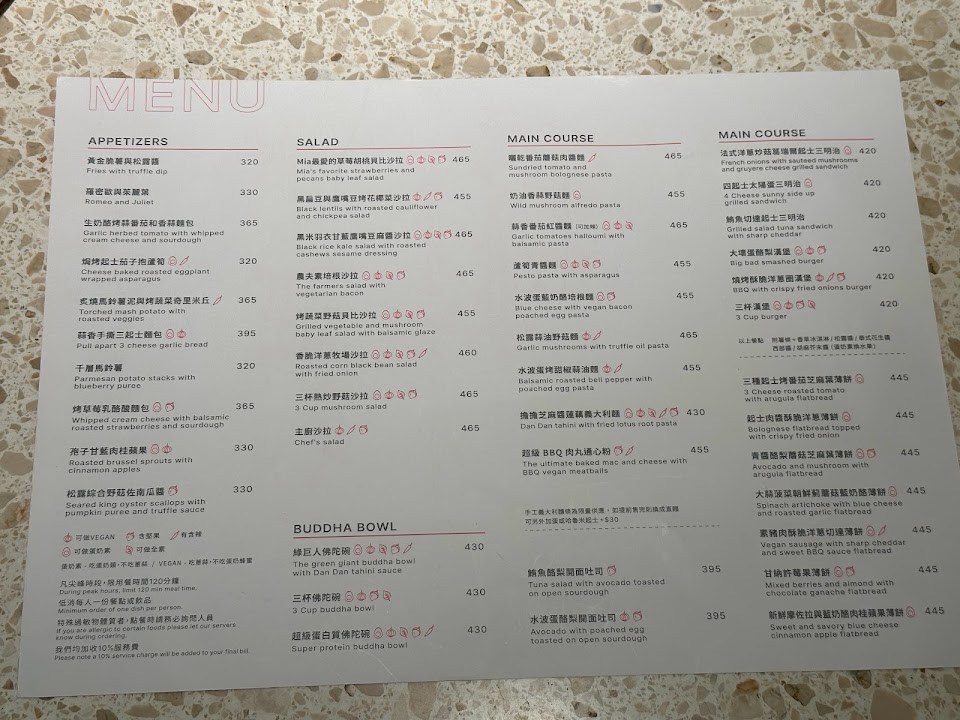 MENU
APPETIZERS
黃金脆薯與松露醬 320
Fries with truffle dip
羅密歐與茱麗葉 330
Romeo and Juliet
生奶酪烤蒜番茄和香蒜麵包 365
Garlic herbed tomato with whipped
cream cheese and sourdough
焗烤起士茄子抱蘆筍 320
Cheese baked roasted eggplant
wrapped asparagus
炙燒馬鈴薯泥與烤蔬菜奇里米丘 365
Torched mash potato with
roasted veggies
蒜香手撕三起士麵包 395
Pull apart 3 cheese garlic bread
千層馬鈴薯 320
Parmesan potato stacks with
blueberry puree
烤草莓乳酪酸麵包 365
Whipped cream cheese with balsamic
roasted strawberries and sourdough
孢子甘藍肉桂蘋果 330
Roasted brussel sprouts with
cinnamon apples
松露綜合野菇佐南瓜醬 330
Seared king oyster scallops with
pumpkin puree and truffle sauce
可做VEGAN 含堅果 有含辣
可做蛋奶素 可做全素
蛋奶素 - 吃蛋奶類・不吃蔥蒜 / VEGAN - 吃蔥蒜・不吃蛋奶蜂蜜
凡尖峰時段，限用餐時間120分鐘
During peak hours, limit 120 min meal time.
低消每人一份餐點或飲品
Minimum order of one dish per person.
特殊過敏物體質者，點餐時請務必詢問人員
If you are allergic to certain foods please let our servers
know during ordering.
我們均加收10%服務費
Please note a 10% service charge will be added to your final bill.
SALAD
Mia最愛的草莓胡桃貝比沙拉 465
Mia's favorite strawberries and
pecans baby leaf salad
黑扁豆與鷹嘴豆烤花椰菜沙拉 455
Black lentils with roasted cauliflower
and chickpea salad
黑米羽衣甘藍鷹嘴豆麻醬沙拉 465
Black rice kale salad with roasted
cashews sesame dressing
農夫素培根沙拉 465
The farmers salad with
vegetarian bacon
烤蔬菜野菇貝比沙拉 455
Grilled vegetable and mushroom
baby leaf salad with balsamic glaze
香脆洋蔥牧場沙拉 460
Roasted corn black bean salad
with fried onion
三杯熱炒野菇沙拉 465
3 Cup mushroom salad
主廚沙拉 465
Chef's salad
BUDDHA BOWL
綠巨人佛陀碗 430
The green giant buddha bowl
with Dan Dan tahini sauce
三杯佛陀碗 430
3 Cup buddha bowl
超級蛋白質佛陀碗 430
Super protein buddha bowl
MAIN COURSE
曬乾番茄蘑菇肉醬麵 465
Sundried tomato and
mushroom bolognese pasta
奶油香蒜野菇麵 455
Wild mushroom alfredo pasta
蒜香番茄紅醬麵 (可加辣) 465
Garlic tomatoes halloumi with
balsamic pasta
蘆筍青醬麵 455
Pesto pasta with asparagus
水波蛋藍奶酪培根麵 455
Blue cheese with vegan bacon
poached egg pasta
松露蒜油野菇麵 465
Garlic mushrooms with truffle oil pasta
水波蛋烤甜椒蒜油麵 455
Balsamic roasted bell pepper with
poached egg pasta
擔擔芝麻醬蓮藕義大利麵 430
Dan Dan tahini with fried lotus root pasta
超級 BBQ 肉丸通心粉 455
The ultimate baked mac and cheese with
BBQ vegan meatballs
手工義大利麵條為限量供應，如提前售完則換成直麵
可另外加蛋或哈魯米起士+$30
鮪魚酪梨開面吐司 395
Tuna salad with avocado toasted
on open sourdough
水波蛋酪梨開面吐司 395
Avocado with poached egg
toasted on open sourdough
MAIN COURSE
法式洋蔥炒菇葛瑞爾起士三明治 420
French onions with sauteed mushrooms
and gruyere cheese grilled sandwich
四起士太陽蛋三明治 420
4 Cheese sunny side up
grilled sandwich
鮪魚切達起士三明治 420
Grilled salad tuna sandwich
with sharp cheddar
大壞蛋酪梨漢堡 420
Big bad smashed burger
燒烤酥脆洋蔥圈漢堡 420
BBQ with crispy fried onions burger
三杯漢堡 420
3 Cup burger
三種起士烤番茄芝麻葉薄餅 445
3 Cheese roasted tomato
with arugula flatbread
起士肉醬酥脆洋蔥薄餅 445
Bolognese flatbread topped
with crispy fried onion
青醬酪梨蘑菇芝麻葉薄餅 445
Avocado and mushroom with
arugula flatbread
大蒜菠菜朝鮮薊蘑菇藍奶酪薄餅 445
Spinach artichoke with blue cheese
and roasted garlic flatbread
素豬肉酥脆洋蔥切達薄餅 445
Vegan sausage with sharp cheddar
and sweet BBQ sauce flatbread
甘納許莓果薄餅 445
Mixed berries and almond with
chocolate ganache flatbread
新鮮摩佐拉與藍奶酪肉桂蘋果薄餅 445
Sweet and savory blue cheese
cinnamon apple flatbread